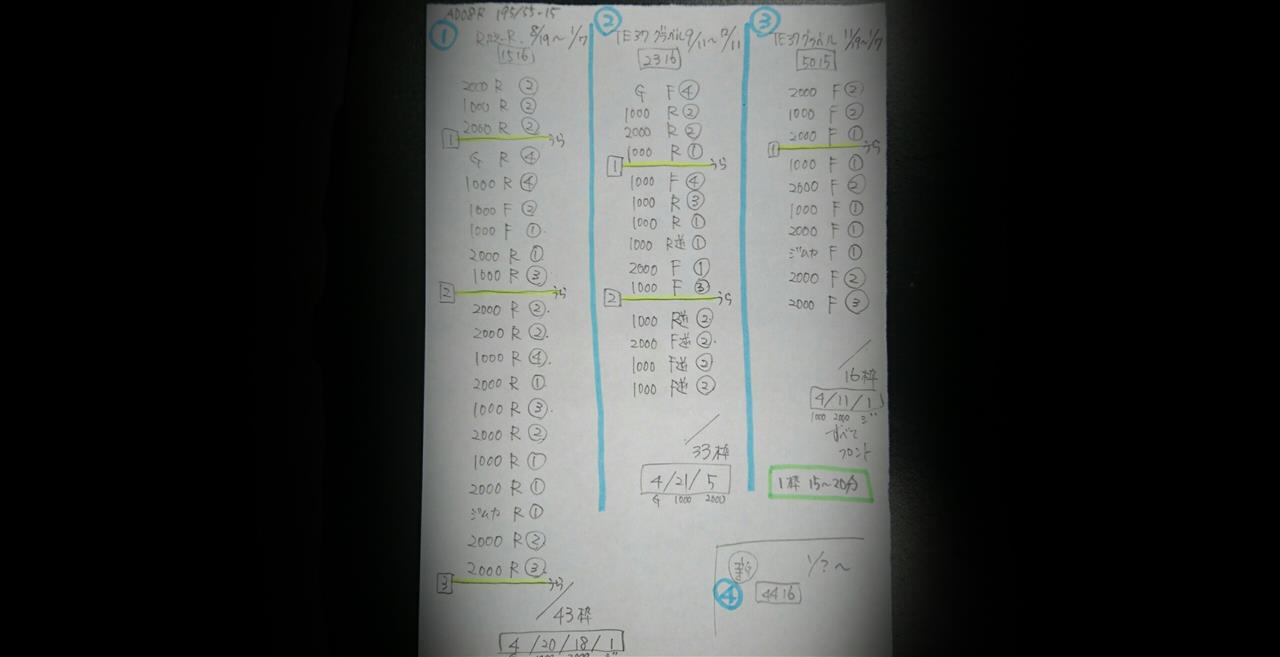 AD08R 195/55-15
①
8/19〜1/7
1516
2000 R ②
1000 R ②
2000 R ②
1 うら
G R ④
1000 R ④
1000 F ②
1000 F ①
2000 R ①
1000 R ③
2 うら
2000 R ②
2000 R ②
1000 R ④
2000 R ①
1000 R ③
2000 R ②
1000 R ①
2000 R ①
ジムカ R ①
2000 R ②
2000 R ③
3 うら
43枠
4/20/18/1
G 1000 2000 ジ
②
TE37グラベル 9/11〜12/11
2316
G F ④
1000 R ②
2000 R ②
1000 R ①
1 うら
1000 F ④
1000 R ③
1000 R ①
1000 R逆 ①
2000 F ①
1000 F ③
2 うら
1000 R逆 ②
2000 F逆 ②
1000 F逆 ②
1000 R逆 ②
33枠
4/21/5
G 1000 2000
③
TE37グラベル 11/19〜1/7
5015
2000 F ②
1000 F ②
2000 F ①
1 うら
1000 F ①
2000 F ②
1000 F ①
2000 F ①
ジムカ F ①
2000 F ②
2000 F ③
16枠
4/11/1
1000 2000 ジ
すべて
フロント
1枠 15〜20分
新 1/?〜
④ 4416